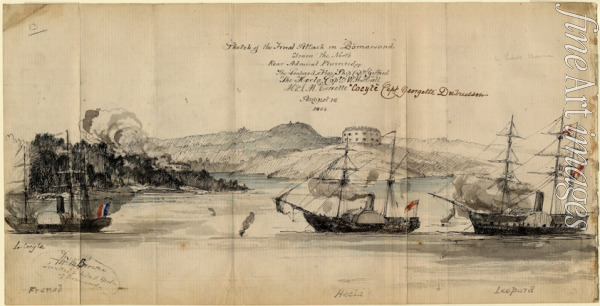 Sketch of the Final Attack on Bomarsund
from the North
Rear Admiral Plumridge
The Leopard, Flag Ship Capt Giffard
The Hecla, Capt W. H. Hall
H.I.M. Corvette "Cocyte" Capt Georgette Dubuisson
August 15
1854
Le Cocyte
French
Hecla
Leopard
fine Art images